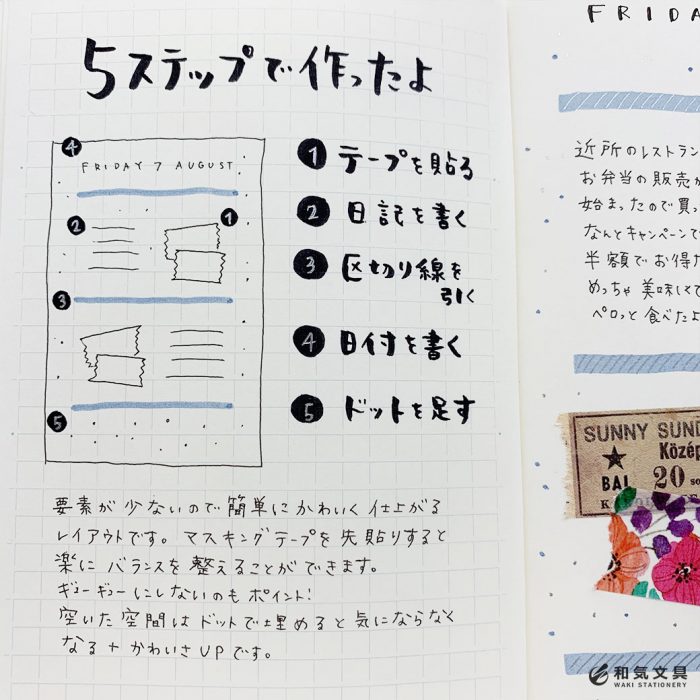 5ステップで作ったよ
❹
FRIDAY 7 AUGUST
❷
❶
❸
❺
❶ テープを貼る
❷ 日記を書く
❸ 区切り線を
引く
❹ 日付を書く
❺ ドットを足す
要素が少ないので簡単にかわいく仕上がる
レイアウトです。マスキングテープを先貼りすると
楽にバランスを整えることができます。
ギューギューにしないのもポイント!
空いた空間はドットで埋めると気にならなく
なる+かわいさUPです。
FRIDA
近所のレストラン
お弁当の販売が
始まったので買っ
なんとキャンペーンで
半額でお得だ
めっちゃ美味しくて
ペロッと食べたよ
SUNNY SUND
★ Közép
BAL 20 so
和気文具
WAKI STATIONERY